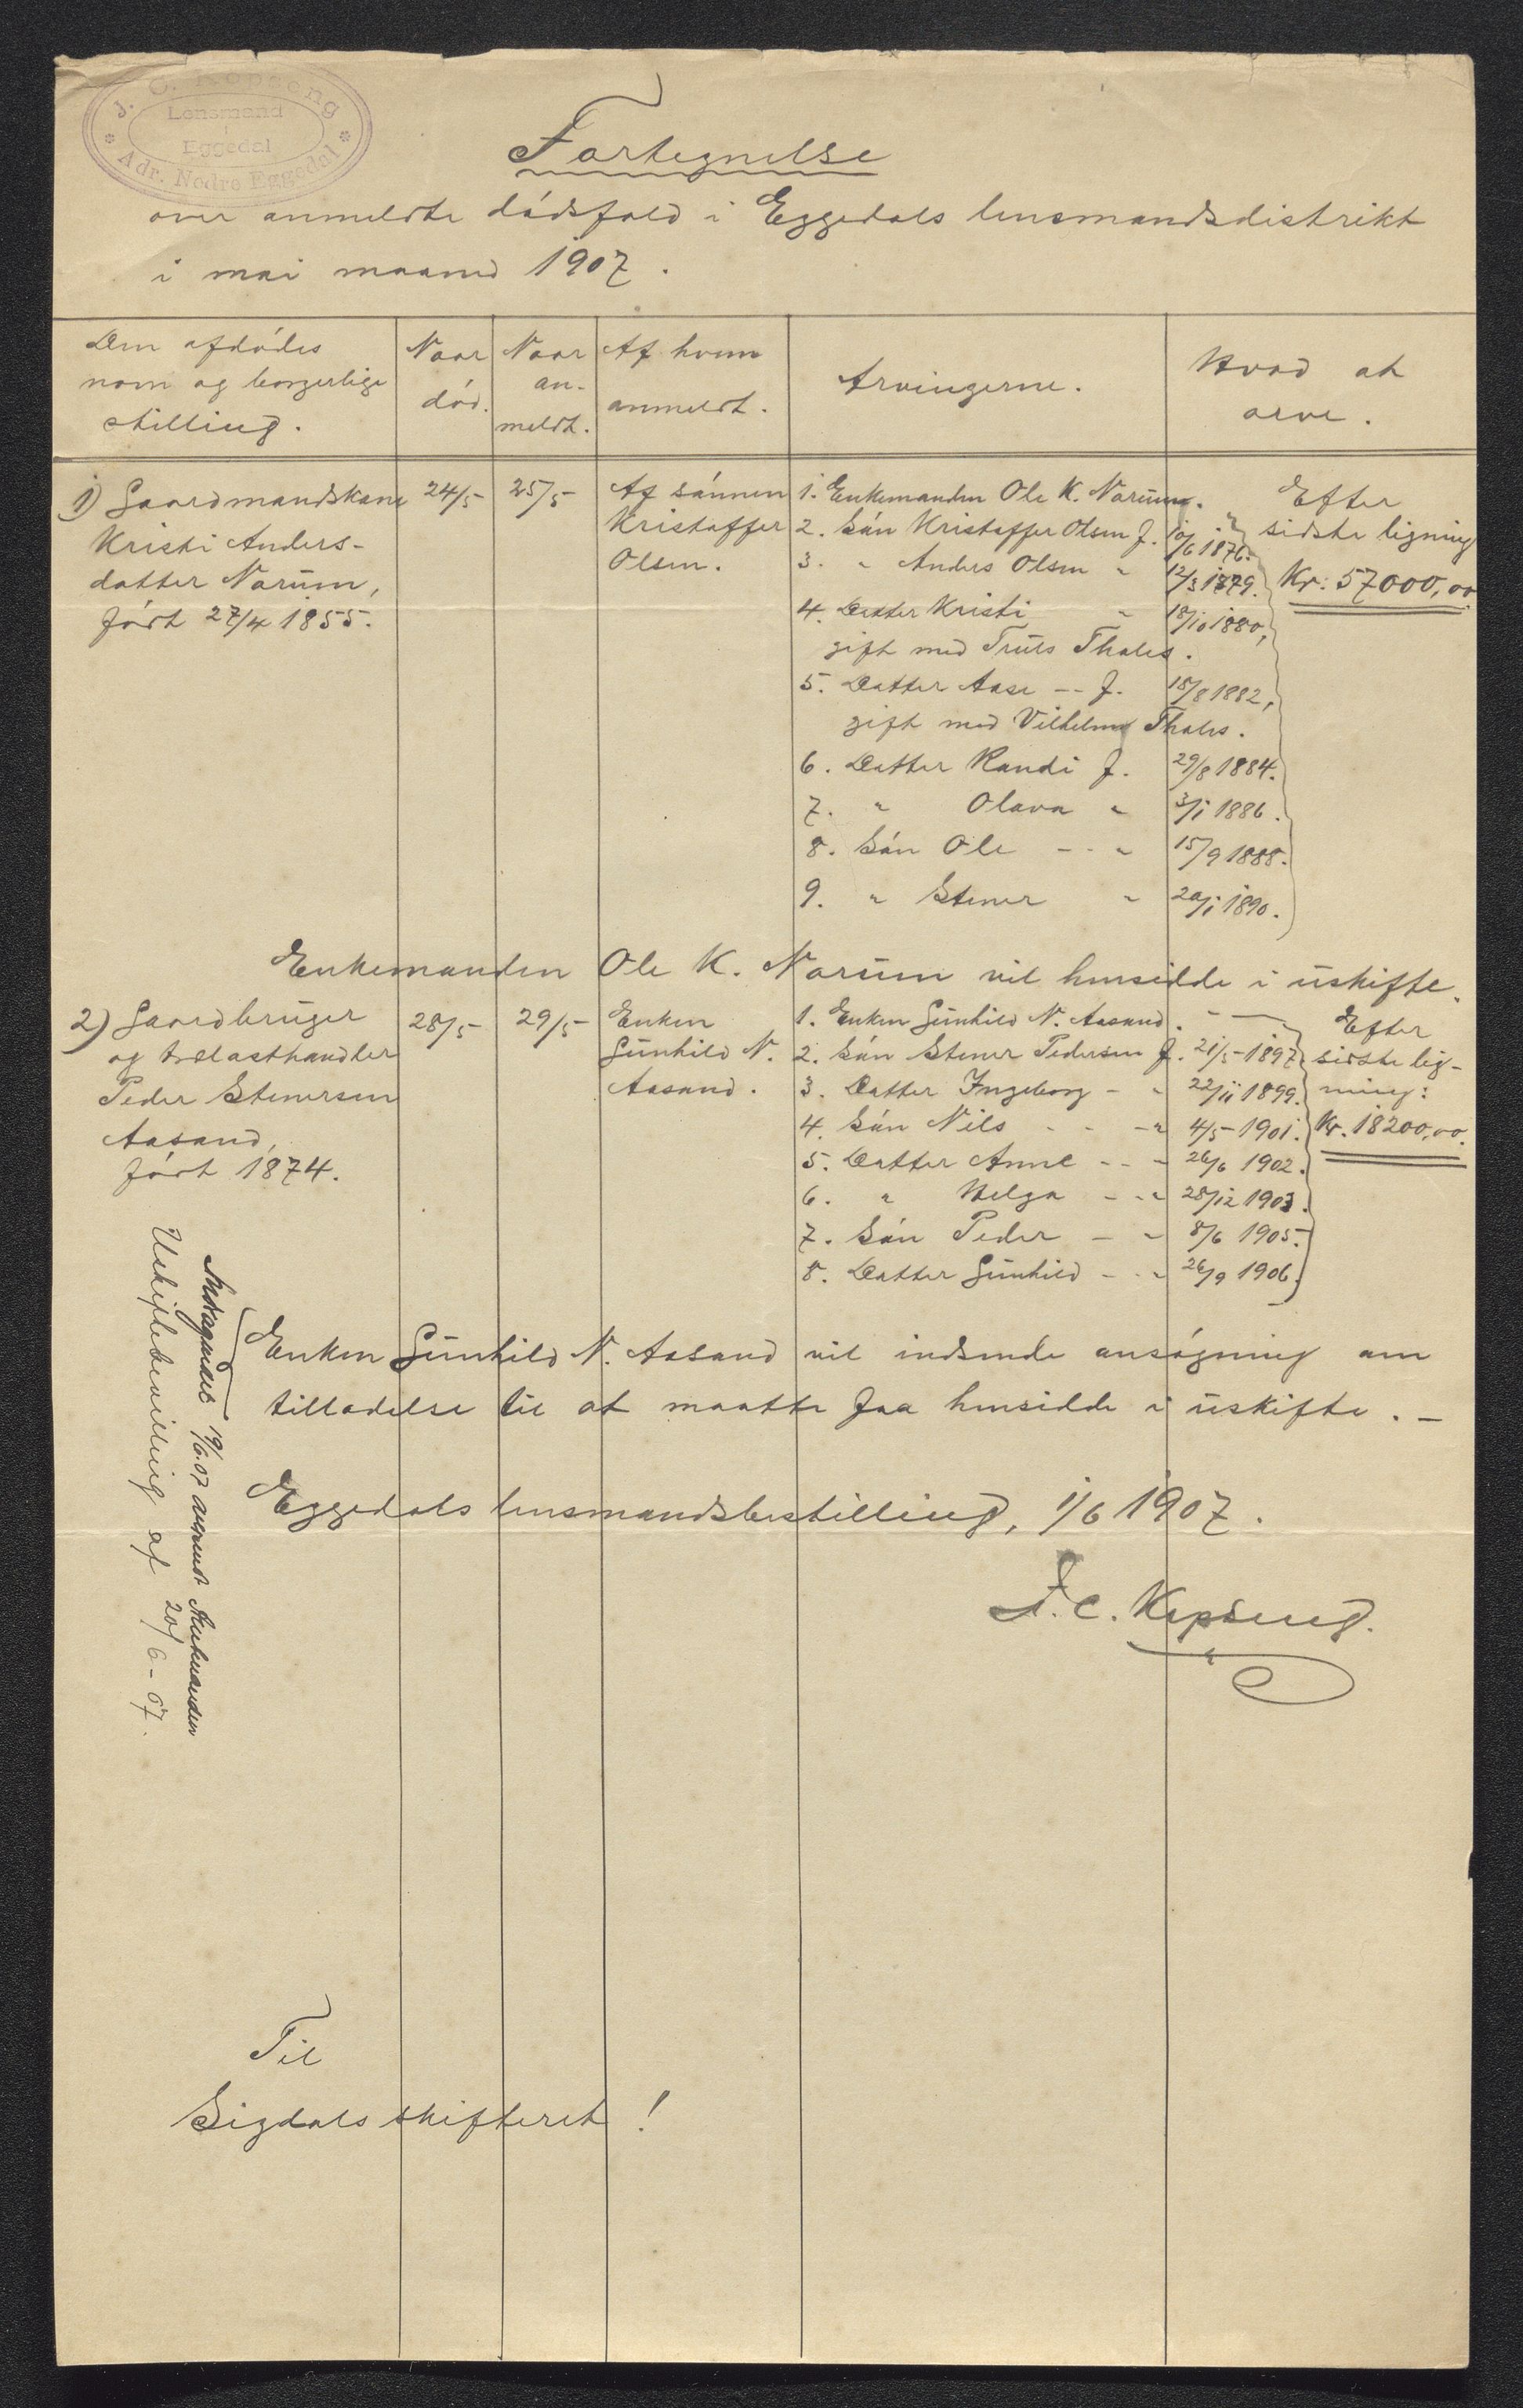 J. C. Kopseng
Lensmand
i
Eggedal
* Adr. Nedre Eggedal *
Fortegnelse
over anmeldte dødsfald i Eggedals lensmandsdistrikt
i mai maaned 1907.
Den afdødes
navn og borgerlige
stilling.
Naar
død.
Naar
an-
meldt.
Af hvem
anmeldt.
Arvingerne.
Hvad at
arve.
1) Gaardmandskone
Kristi Anders-
datter Narum,
født 27/4 1855.
24/5
25/5
Af sønnen
Kristoffer
Olsen.
1. Enkemanden Ole K. Narum.
2. Søn Kristoffer Olsen f. 10/6 1876.
3. " Anders Olsen " 12/3 1879.
4. Datter Kristi " 18/10 1880,
gift med Truls Thales.
5. Datter Aase -- f. 18/8 1882,
gift med Vilhelm Thales.
6. Datter Randi f. 29/8 1884.
7. " Olava " 3/1 1886.
8. Søn Ole - - " 15/9 1888.
9. " Stener " 20/1 1890.
Efter
sidste ligning
Kr. 57000,00
Enkemanden Ole K. Narum vil hensidde i uskifte.
2) Gaardbruger
og trælasthandler
Peder Stenersen
Aasand,
født 1874.
28/5
29/5
Enken
Gunhild N.
Aasand.
1. Enken Gunhild N. Aasand. -
2. Søn Stener Pedersen f. 21/5 1897
3. Datter Ingeborg - " 22/11 1899.
4. Søn Nils - - " 4/5 1901.
5. Datter Anne - - - 26/6 1902.
6. " Helga - - " 28/12 1903.
7. Søn Peder - " 8/6 1905.
8. Datter Gunhild - - " 26/9 1906.
Efter
sidste lig-
ning:
Kr. 18200,00.
Enken Gunhild N. Aasand vil indsende ansøgning om
tilladelse til at maatte faa hensidde i uskifte. -
19/6.07
Uskiftebevilling af 20/6-07.
Eggedals lensmandsbestilling, 1/6 1907.
J. C. Kopseng.
Til
Sigdals skifteret!